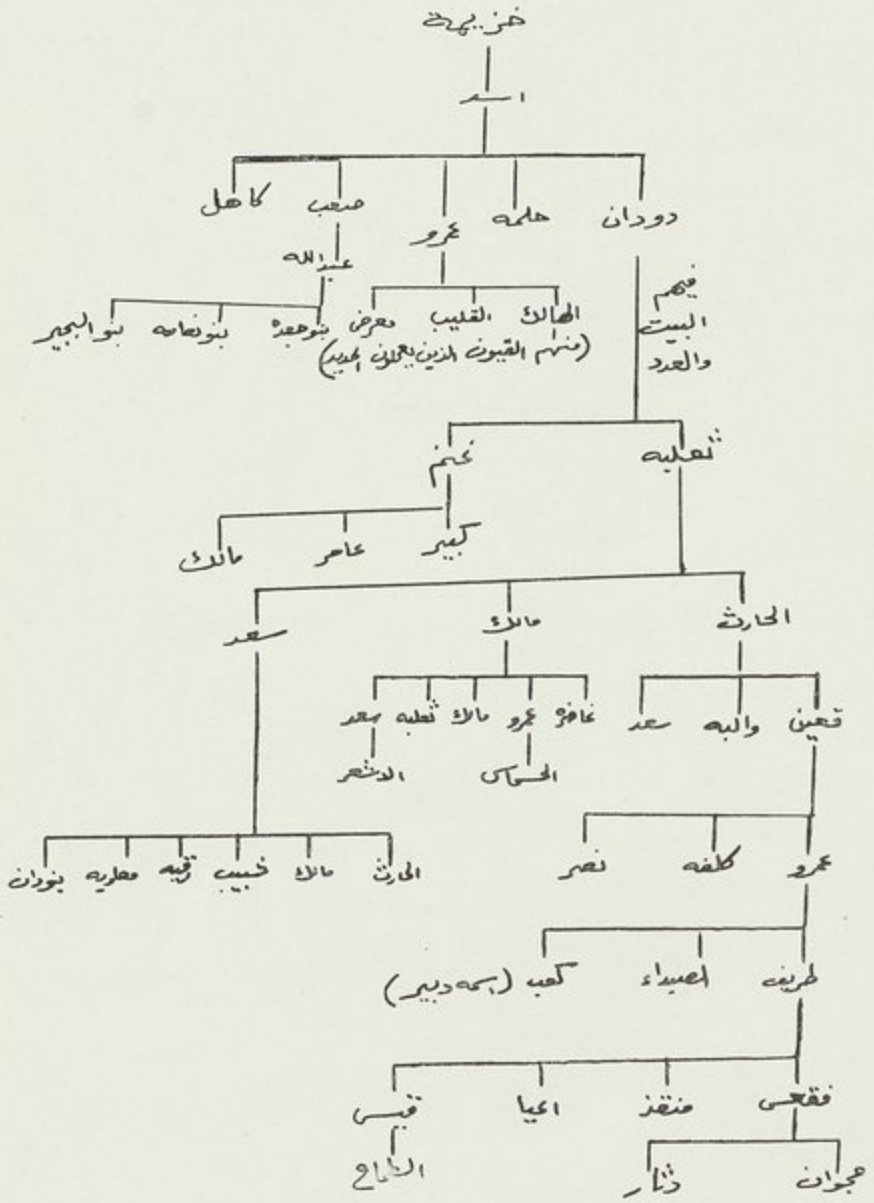 خزيمة
اسد
دودان حلمه عمرو صعب كاهل
عبدالله
فيهم
البيت
والعدد
الهالك القليب معرض
(منهم القيون الذين يعملون الحديد)
بنوجعده بنونعامه بنوالبجير
ثعلبه غنم
كبير عامر مالك
الحارث مالك سعد
قعين والبه سعد
غاضره عمرو مالك ثعلبه سعد
الحسحاس الاشعر
عمرو كلفه نصر
الحارث مالك شبيب رقيه معاويه بنودان
طريف الصيداء كعب (اسمه دبير)
فقعس منقذ اعيا قيس
جحوان دثار الطماح